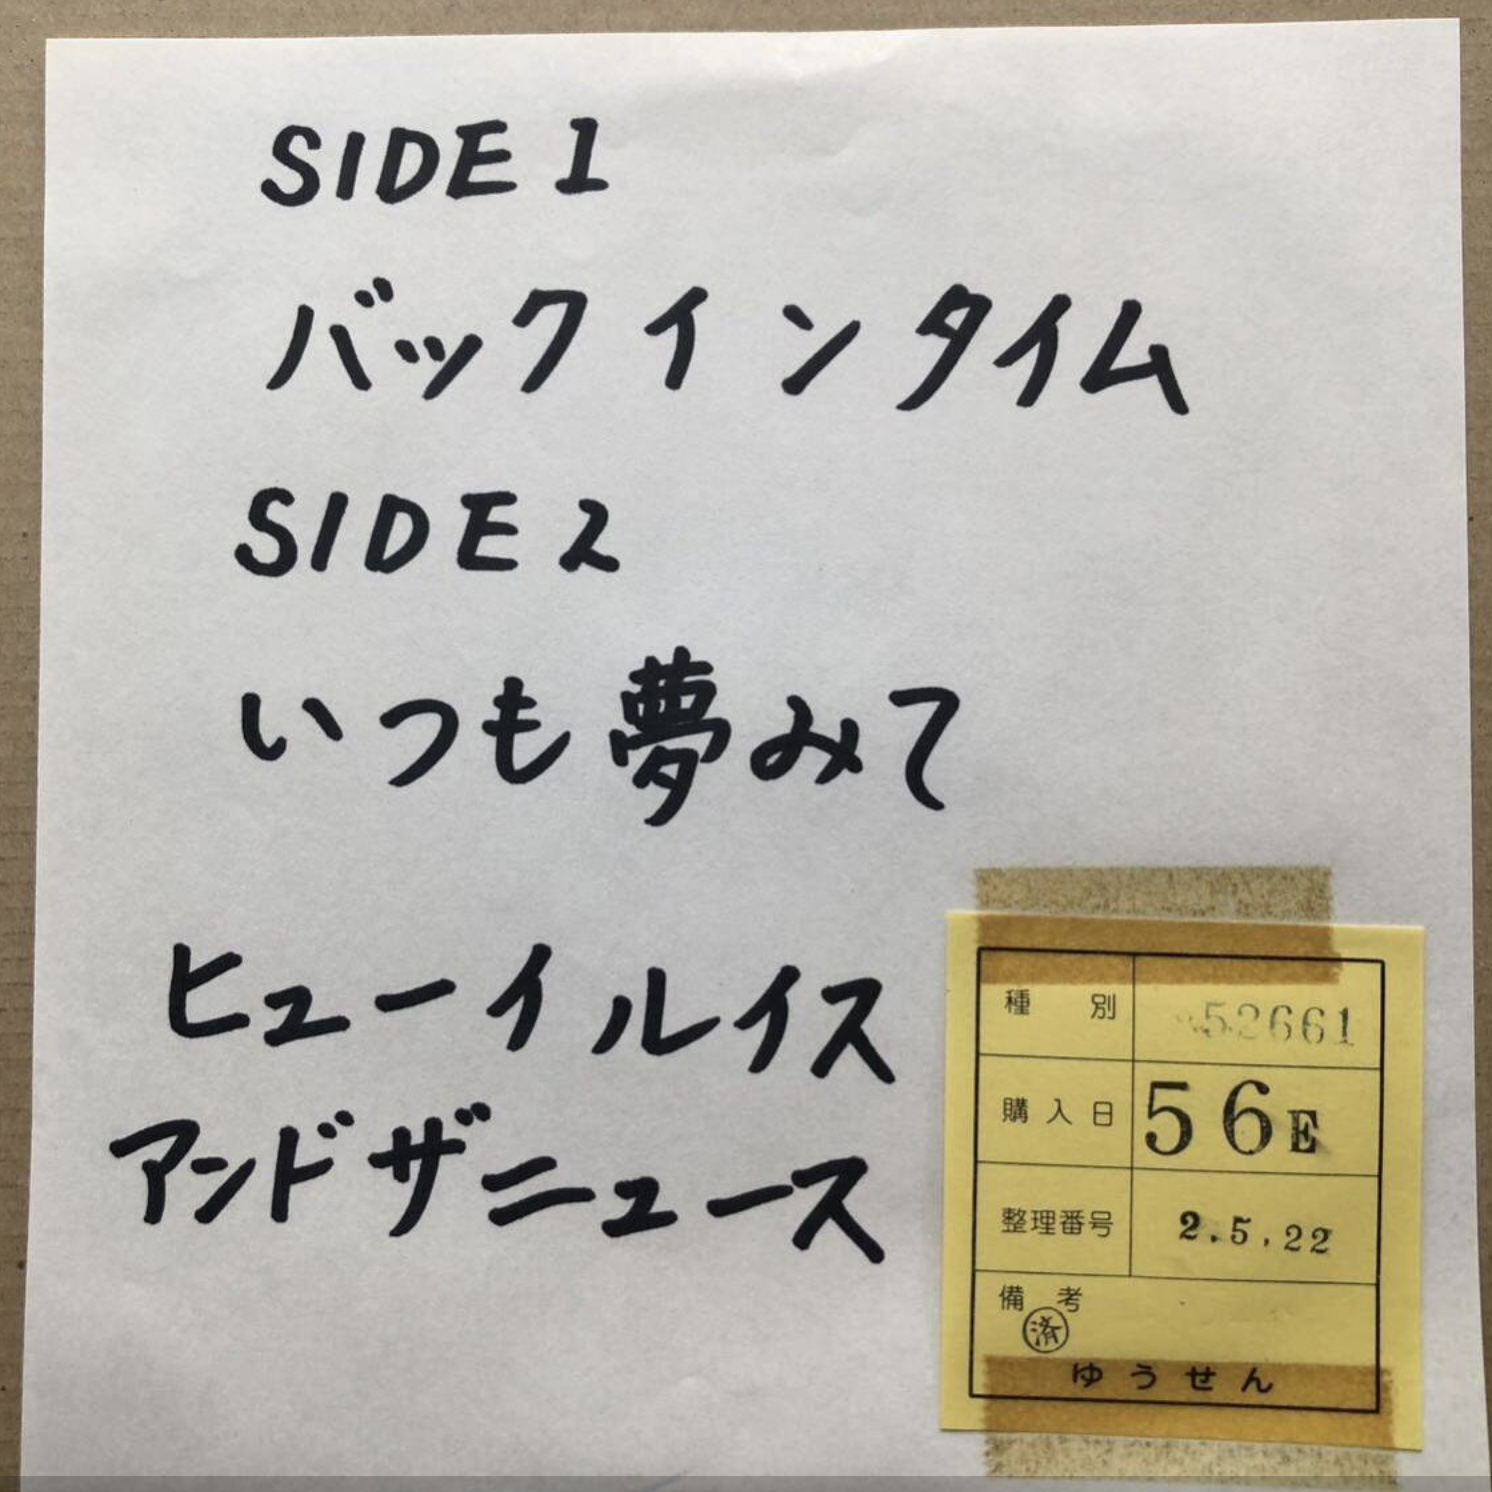 SIDE 1
バック イン タイム
SIDE 2
いつも夢みて
ヒューイ ルイス
アンド ザ ニュース
種別 52661
購入日 56E
整理番号 2.5.22
備考
済
ゆうせん